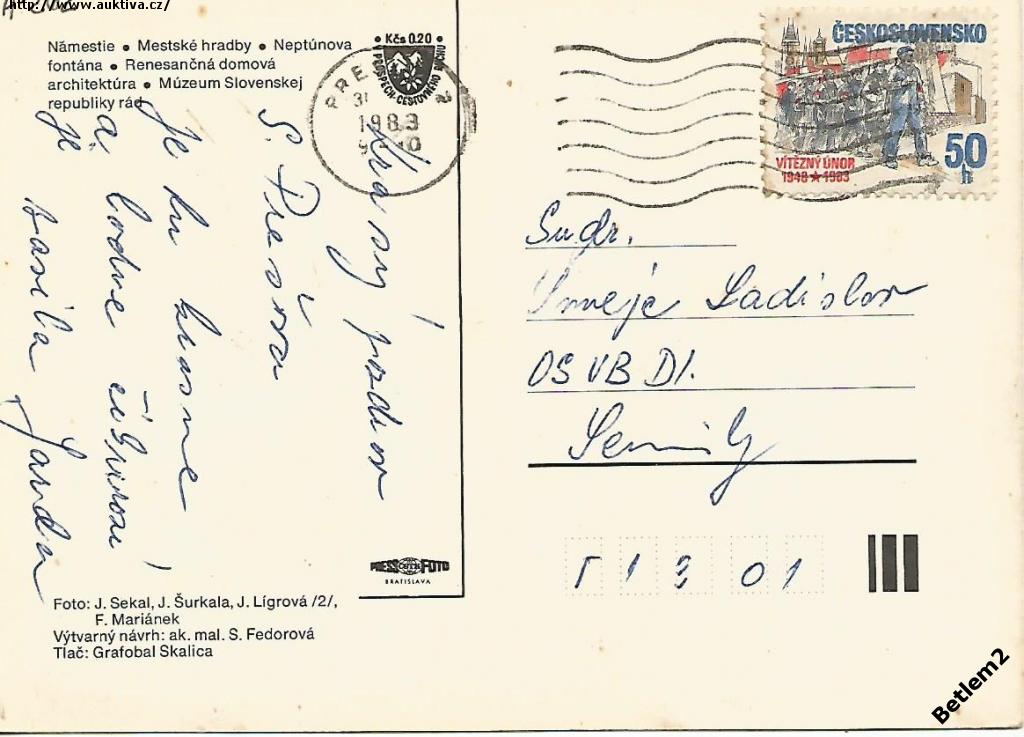 http://www.auktiva.cz/
Námestie • Mestské hradby • Neptúnova
fontána • Renesančná domová
architektúra • Múzeum Slovenskej
republiky rád
Kčs 0.20
V PROSPECH CESTOVNÉHO RUCHU
PREŠOV 2
31
1983
ČESKOSLOVENSKO
VÍTĚZNÝ ÚNOR
1948 ★ 1983
50
h
pozdrav
S. Prešova
Je tu krasne
a
je
Sudr.
Ladislav
OS VB DI.
Semily
513 01
PRESSFOTO
BRATISLAVA
Foto: J. Sekal, J. Šurkala, J. Lígrová /2/,
F. Mariánek
Výtvarný návrh: ak. mal. S. Fedorová
Tlač: Grafobal Skalica
Betlem2